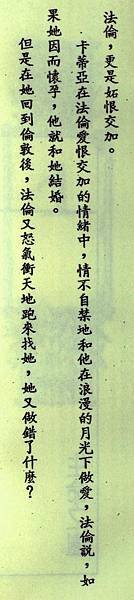 法倫，更是妬恨交加。
卡蒂亞在法倫愛恨交加的情緒中，情不自禁地和他在浪漫的月光下做愛，法倫說，如
果她因而懷孕，他就和她結婚。
但是在她回到倫敦後，法倫又怒氣衝天地跑來找她，她又做錯了什麼？